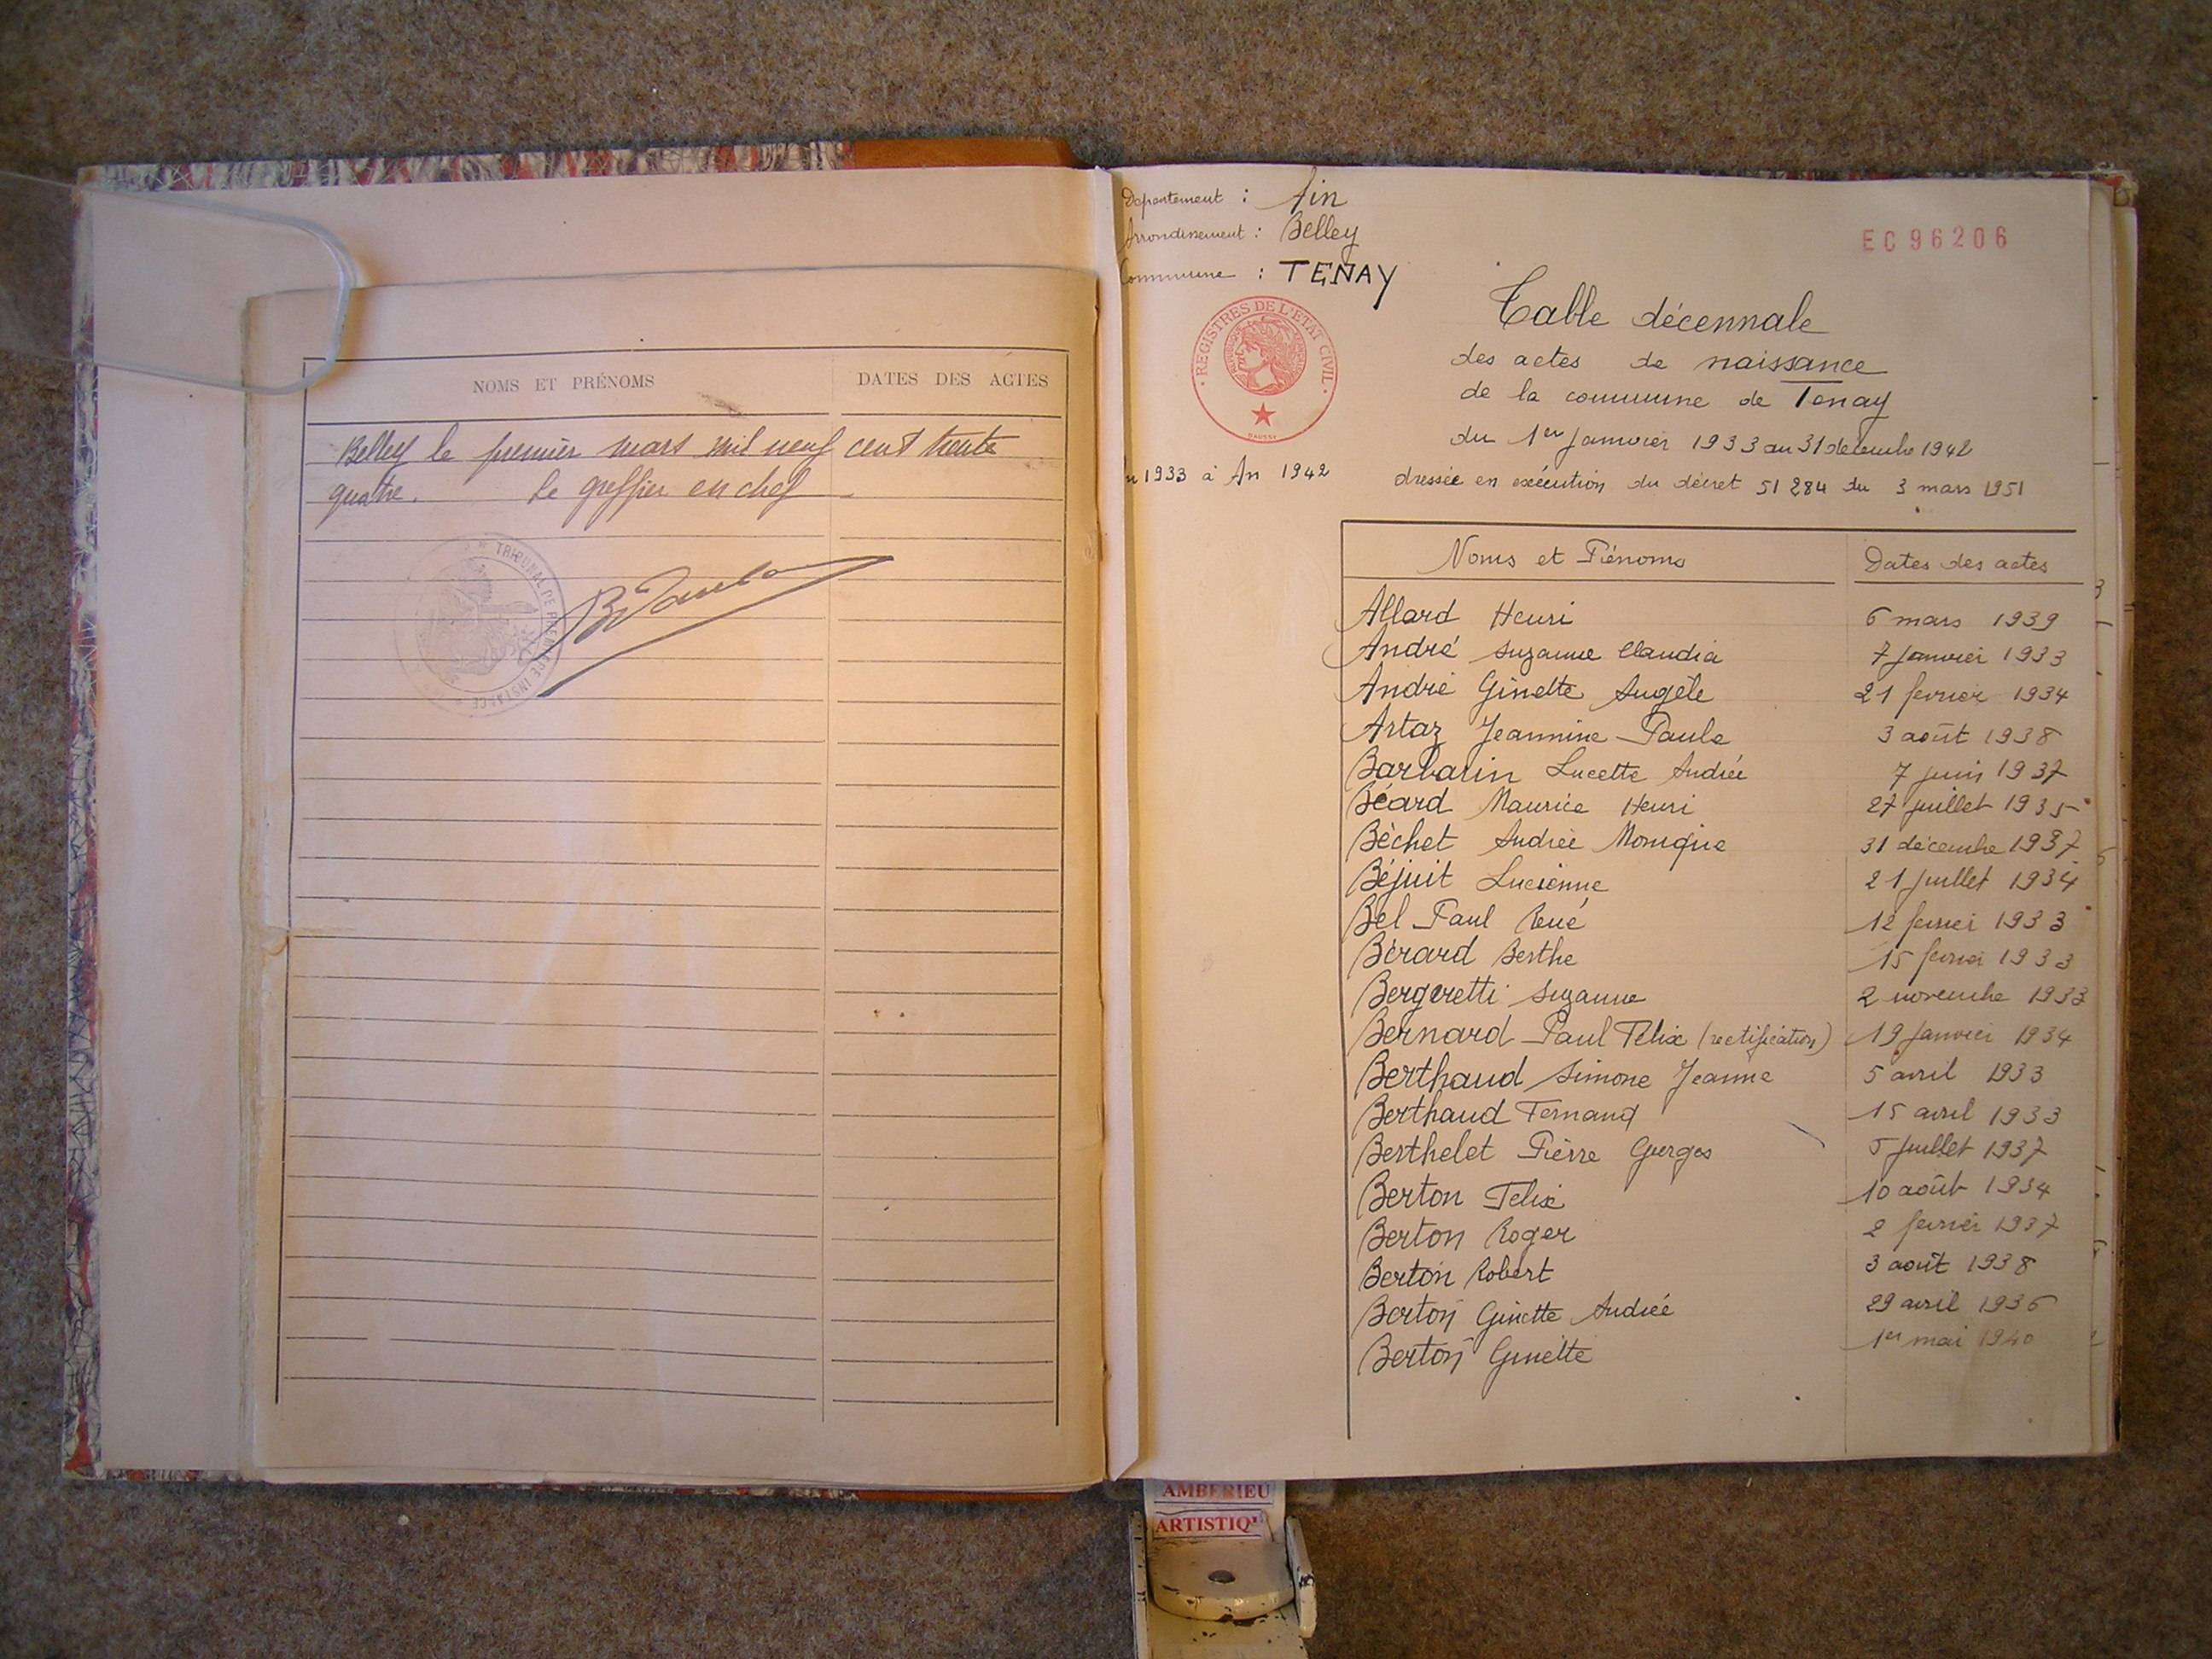 NOMS ET PRÉNOMS
DATES DES ACTES
Belley le premier mars mil neuf cent trente
quatre. Le greffier en chef
TRIBUNAL DE PREMIERE INSTANCE
Departement : Ain
Arrondissement : Belley
Commune : TENAY
EC96206
REGISTRES DE L'ETAT CIVIL
Table décennale
des actes de naissance
de la commune de Tenay
du 1er Janvier 1933 au 31 décembre 1942
1933 à An 1942
dressée en exécution du décret 51 284 du 3 mars 1951
Noms et Prénoms
Dates des actes
Allard Henri 6 mars 1939
André Suzanne Claudia 7 Janvier 1933
André Ginette Angèle 21 fevrier 1934
Artaz Jeannine Paule 3 août 1938
Barbarin Lucette Andrée 7 juin 1937
Béard Maurice Henri 27 juillet 1935
Béchet Andrée Monique 31 décembre 1937
Béjuit Lucienne 21 juillet 1934
Bel Paul René 12 fevrier 1933
Bérard Berthe 15 fevrier 1933
Bergeretti Suzanne 2 novembre 1933
Bernard Paul Félix (rectification) 19 Janvier 1934
Berthaud Simone Jeanne 5 avril 1933
Berthaud Fernand 15 avril 1933
Berthelet Pierre Georges 5 Juillet 1937
Berton Felix 10 août 1934
Berton Roger 2 fevrier 1937
Berton Robert 3 août 1938
Berton Ginette Andrée 29 avril 1936
Berton Ginette 1er mai 1940
AMBERIEU
ARTISTIQ